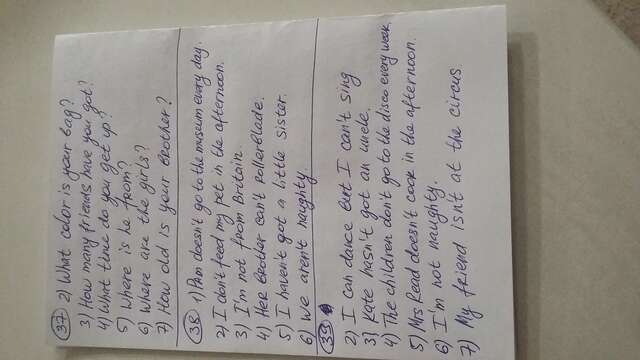 37 2) What color is your bag?
3) How many friends have you got?
4) What time do you get up?
5) Where is he from?
6) Where are the girls?
7) How old is your brother?
38 1) Pam doesn't go to the museum every day.
2) I don't feed my pet in the afternoon.
3) I'm not from Britain.
4) Her brother can't rollerblade.
5) I haven't got a little sister.
6) We aren't naughty.
39
2) I can dance but I can't sing
3) Kate hasn't got an uncle.
4) The children don't go to the disco every week.
5) Mrs Read doesn't cook in the afternoon.
6) I'm not naughty.
7) My friend isn't at the circus